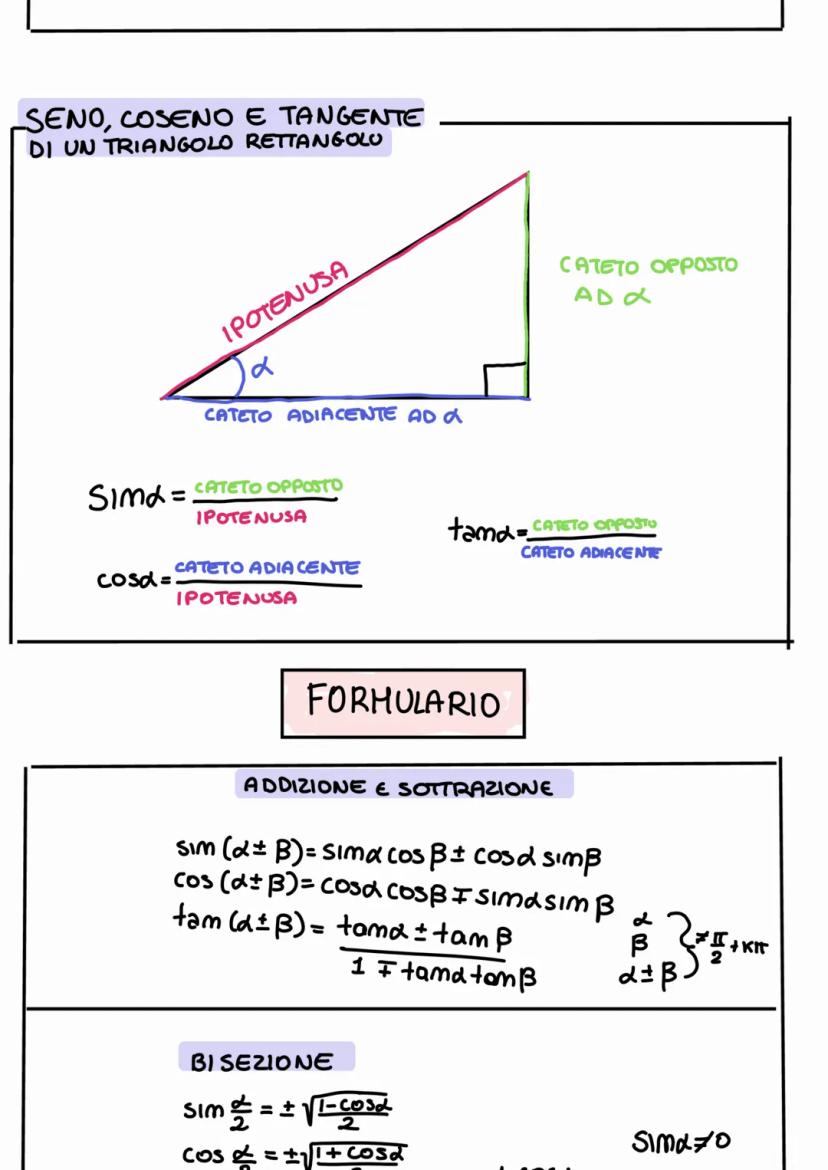 SENO, COSENO E TANGENTE
DI UN TRIANGOLO RETTANGOLO
IPOTENUSA
CATETO OPPOSTO
AD α
α
CATETO ADIACENTE AD α
sin α = CATETO OPPOSTO / IPOTENUSA
tan α = CATETO OPPOSTO / CATETO ADIACENTE
cos α = CATETO ADIACENTE / IPOTENUSA
FORMULARIO
ADDIZIONE E SOTTRAZIONE
sin (α ± β) = sin α cos β ± cos α sin β
cos (α ± β) = cos α cos β ∓ sin α sin β
tan (α ± β) = tan α ± tan β / 1 ∓ tan α tan β
α
β
α ± β
} ≠ π/2 + kπ
BISEZIONE
sin α/2 = ± √(1 - cos α / 2)
sin α ≠ 0
cos α/2 = ± √(1 + cos α